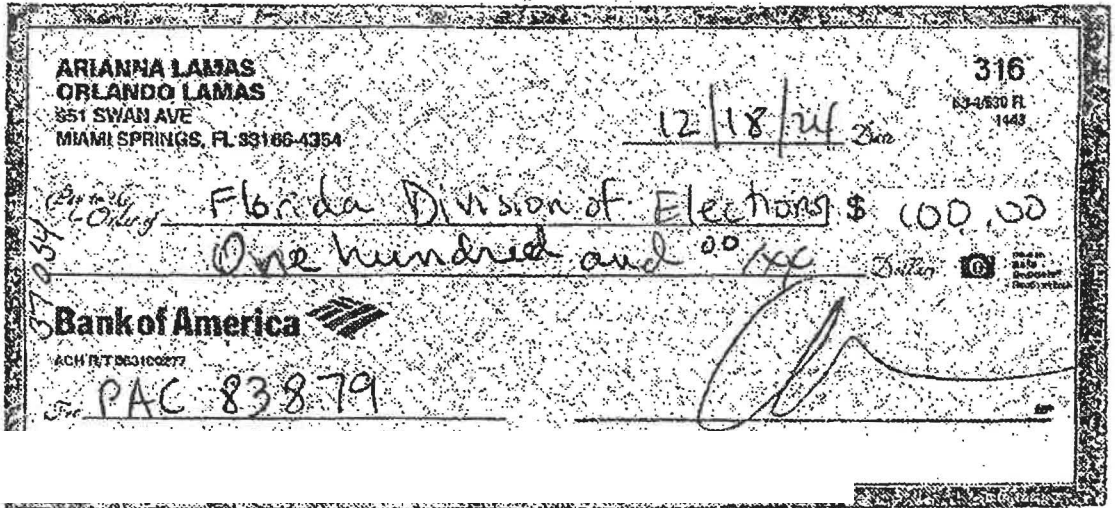 ARIANNA LAMAS
ORLANDO LAMAS
551 SWAN AVE
MIAMI SPRINGS, FL 33166-4354
316
63-4/630 FL
1443
12/18/24 Date
Pay to the Order of Florida Division of Elections $ 100.00
One hundred and 00/xx Dollars
37054
Bank of America
ACH R/T 063100277
For PAC 83879